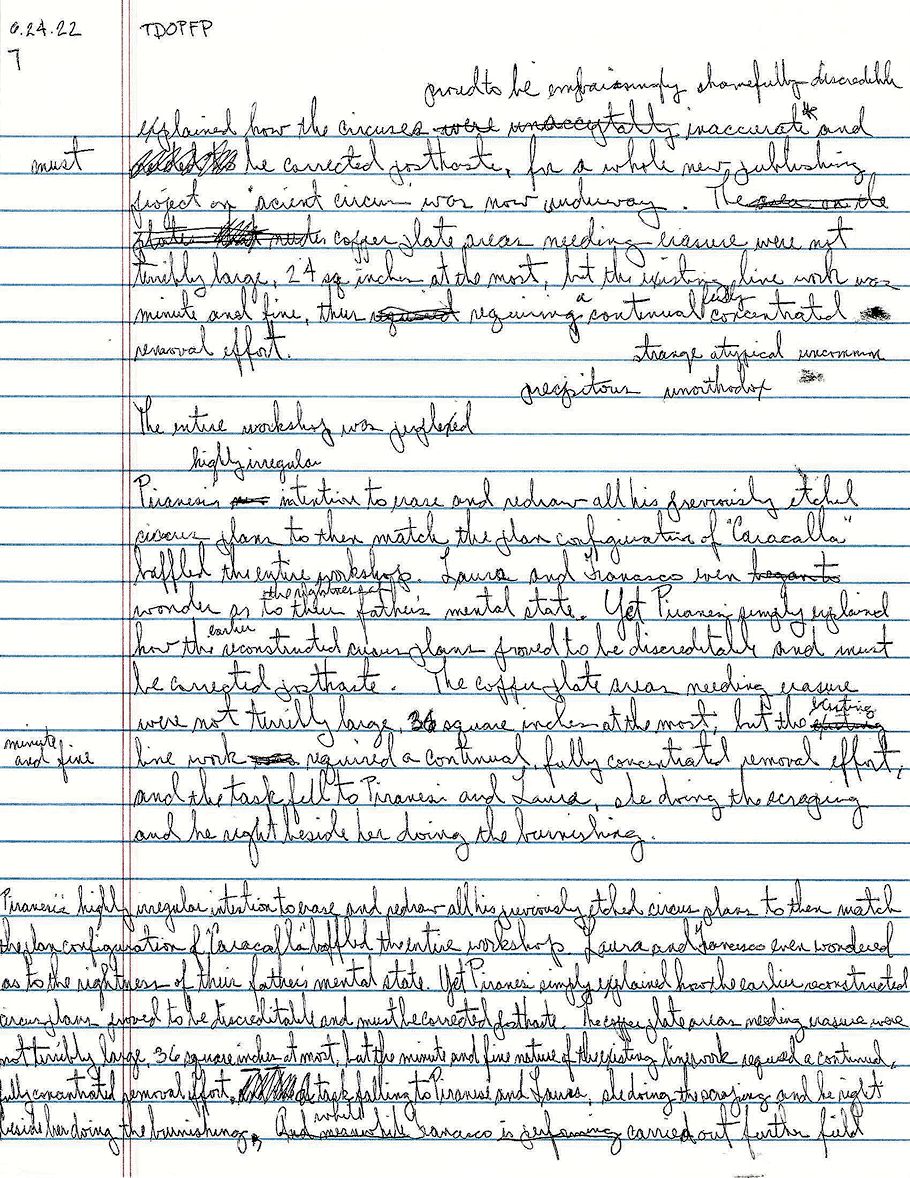 6.24.22 TDOPFP
7
proved to be embarassingly shamefully discredible
explained how the circuses were unacceptably inaccurate * and
must be corrected posthaste, for a whole new publishing
project on "acient circum" was now underway. The area on the
plates that needs copper plate areas needing erasure were not
terribly large, 24 sq inches at the most, but the existing line work was
minute and fine, thus required requiring a continual fully concentrated
removal effort. strange atypical uncommon
precipitous unorthodox
The entire workshop was perplexed
highly irregular
Piranesi's intention to erase and redraw all his previously etched
circus plans to then match the plan configuration of "Caracalla"
baffled the entire workshop. Laura and Francesco even began to
the rightness of
wonder as to their father's mental state. Yet Piranesi simply explained
how the earlier reconstructed circus plans proved to be discreditable and must
be corrected posthaste. The copper plate areas needing erasure
were not terribly large, 36 square inches at the most, but the existing
minute and fine line work required a continual, fully concentrated removal effort,
and the task fell to Piranesi and Laura, she doing the scraping
and he right beside her doing the burnishing.
Piranesi's highly irregular intention to erase and redraw all his previously etched circus plans to then match
the plan configuration of "Caracalla" baffled the entire workshop. Laura and Francesco even wondered
as to the rightness of their father's mental state. Yet Piranesi simply explained how the earlier reconstructed
circus plans proved to be discreditable and must be corrected posthaste. The copper plate areas needing erasure were
not terribly large, 36 square inches at most, but the minute and fine nature of the existing linework required a continual,
fully concentrated removal effort, a task falling to Piranesi and Laura, she doing the scraping and he right
beside her doing the burnishing, And meanwhile while Francesco is performing carried out further field